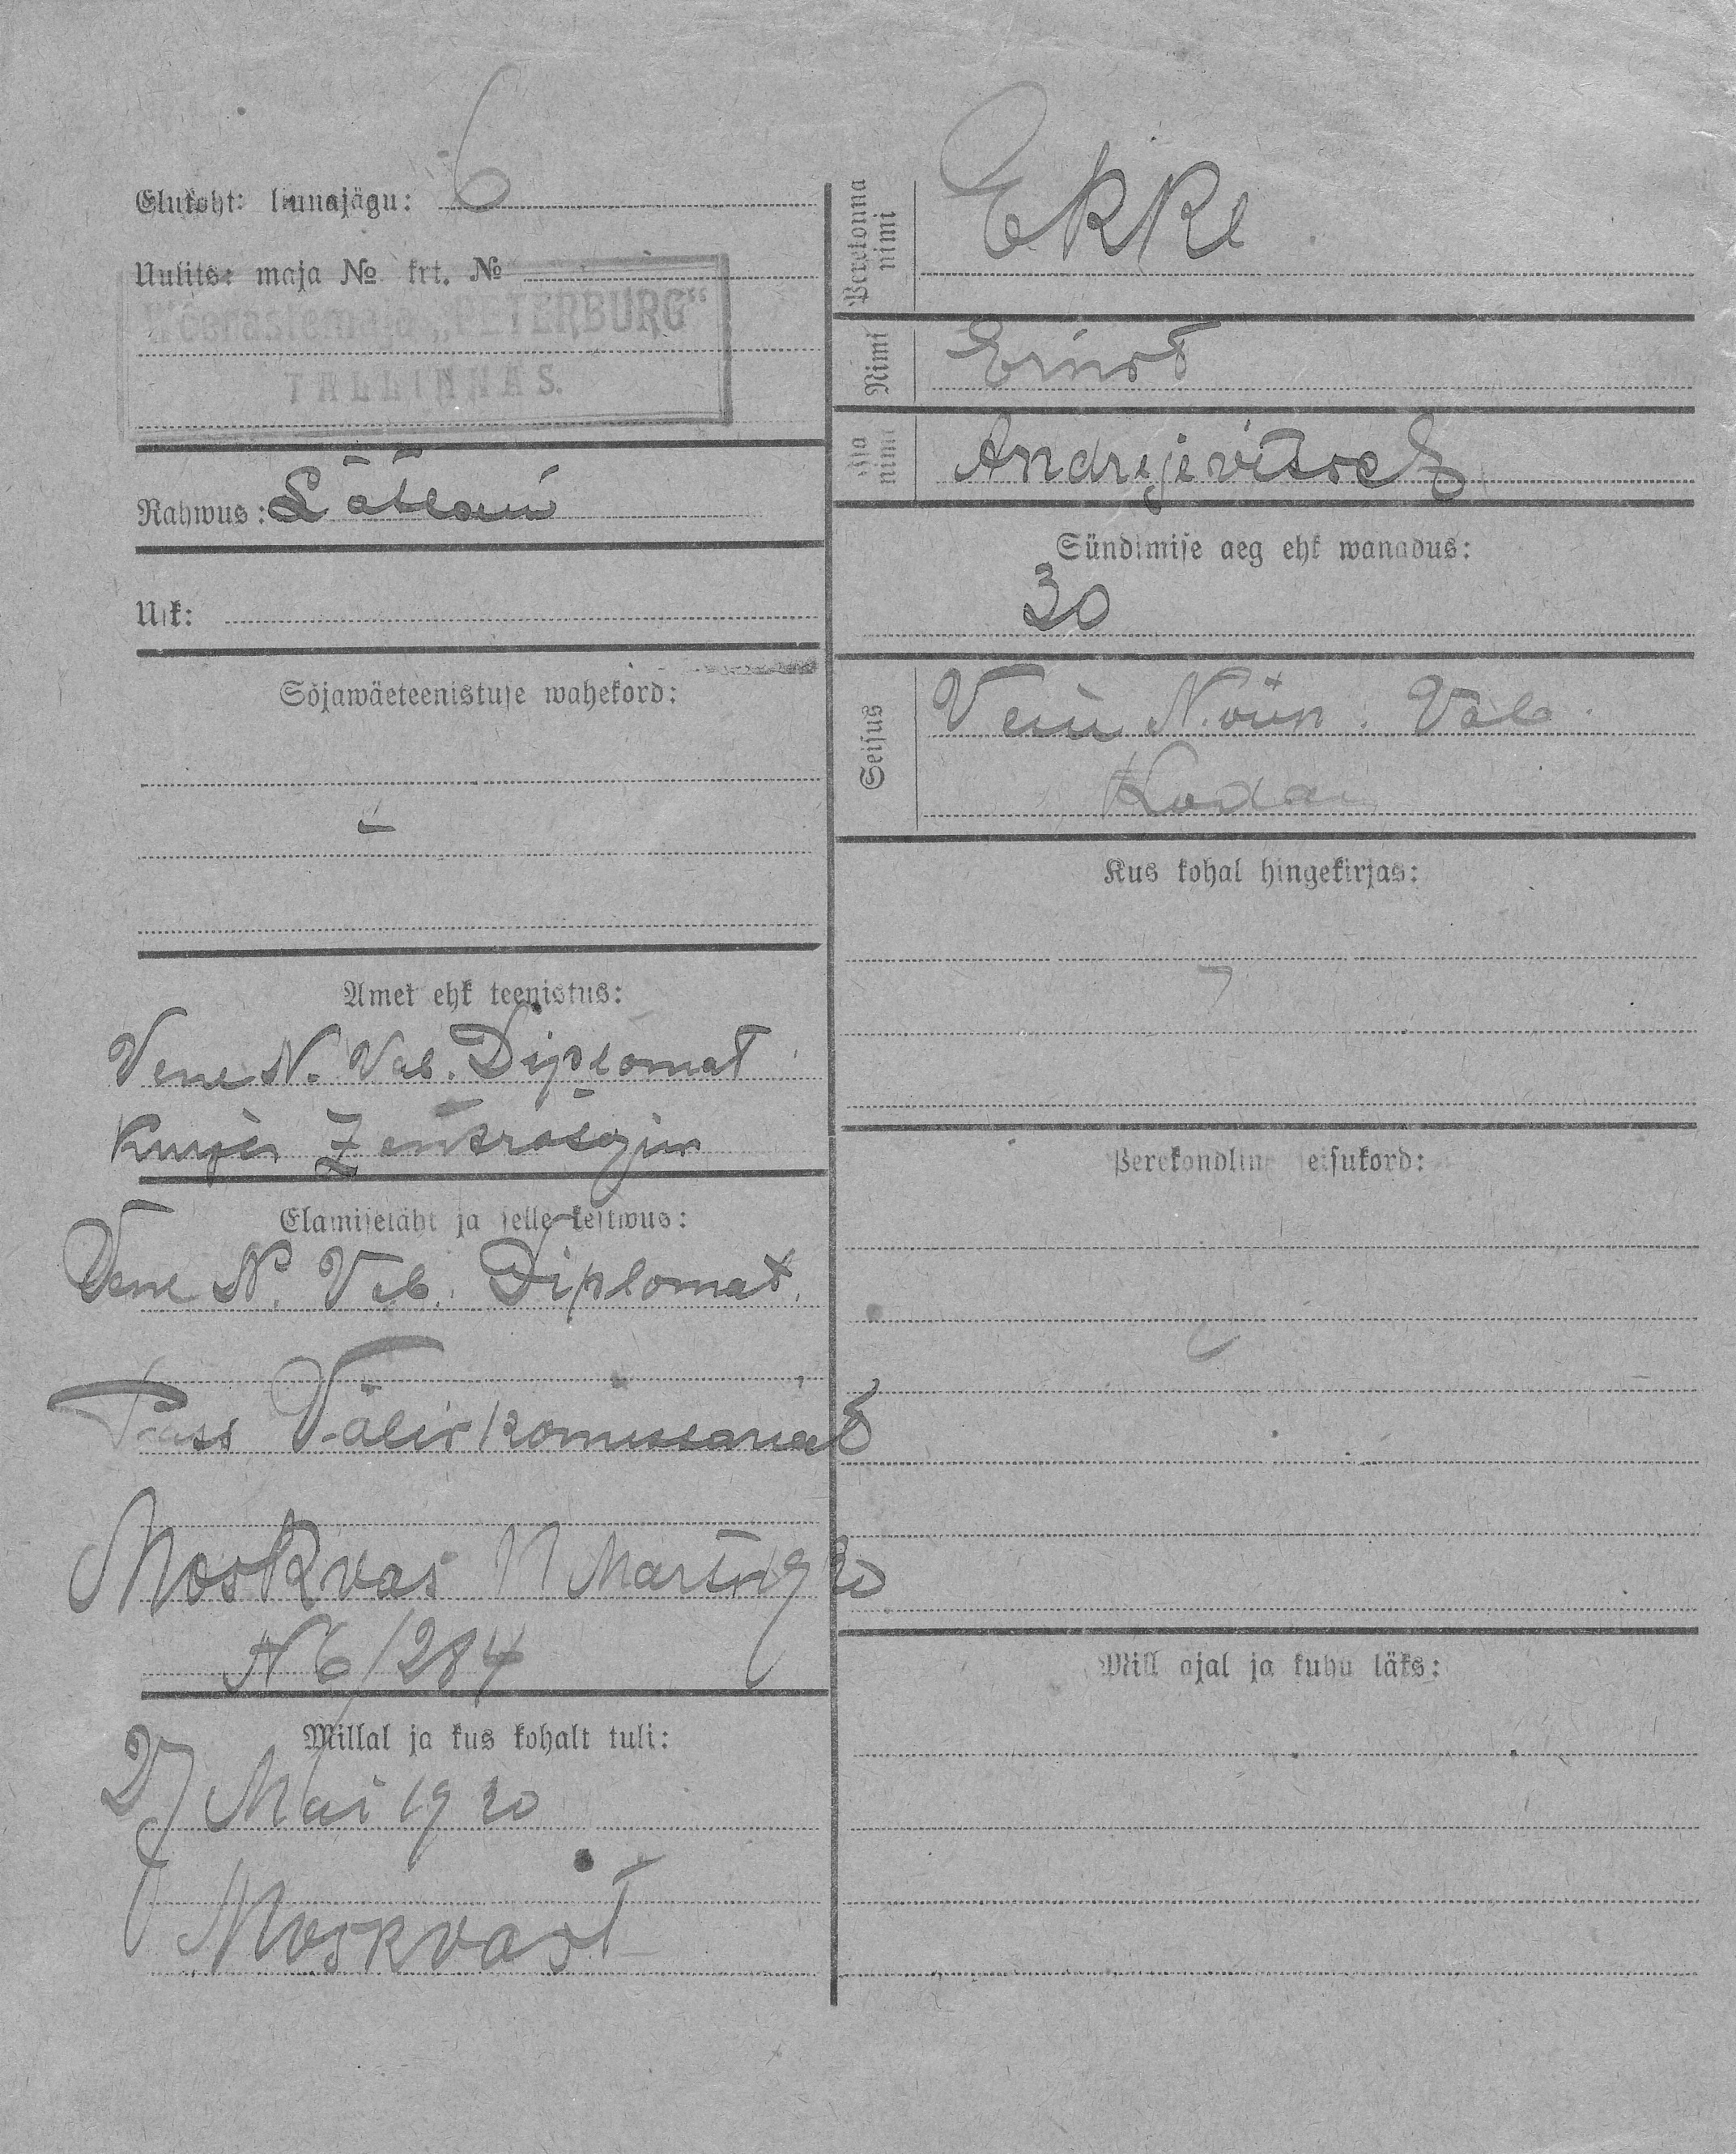 Elukoht: linnajägu: 6
Uulits: maja № krt. №
Wöerastemaja „PETERBURG“
TALLINNAS.
Rahwus: Lätlani
Usk:
Sõjawäeteenistuse wahekord:
-
Amet ehk teenistus:
Vene N. Vab. Diplomat
Kurjer
Elamiseläht ja selle kestwus:
Vene N. Vab. Diplomat.
Pass Välis komissariat
Moskvas 17 Martsn 1920
N 6/284
Millal ja kus kohalt tuli:
27 Mai 1920
Moskvast
Perekonna nimi
Ekke
Nimi
Ernst
Isa nimi
Andrejevitsch
Sündimise aeg ehk wanadus:
30
Seisus
Vene Nõuk. Vab.
Kodan
Kus kohal hingekirjas:
Perekondline seisukord:
Mill ajal ja kuhu läks: